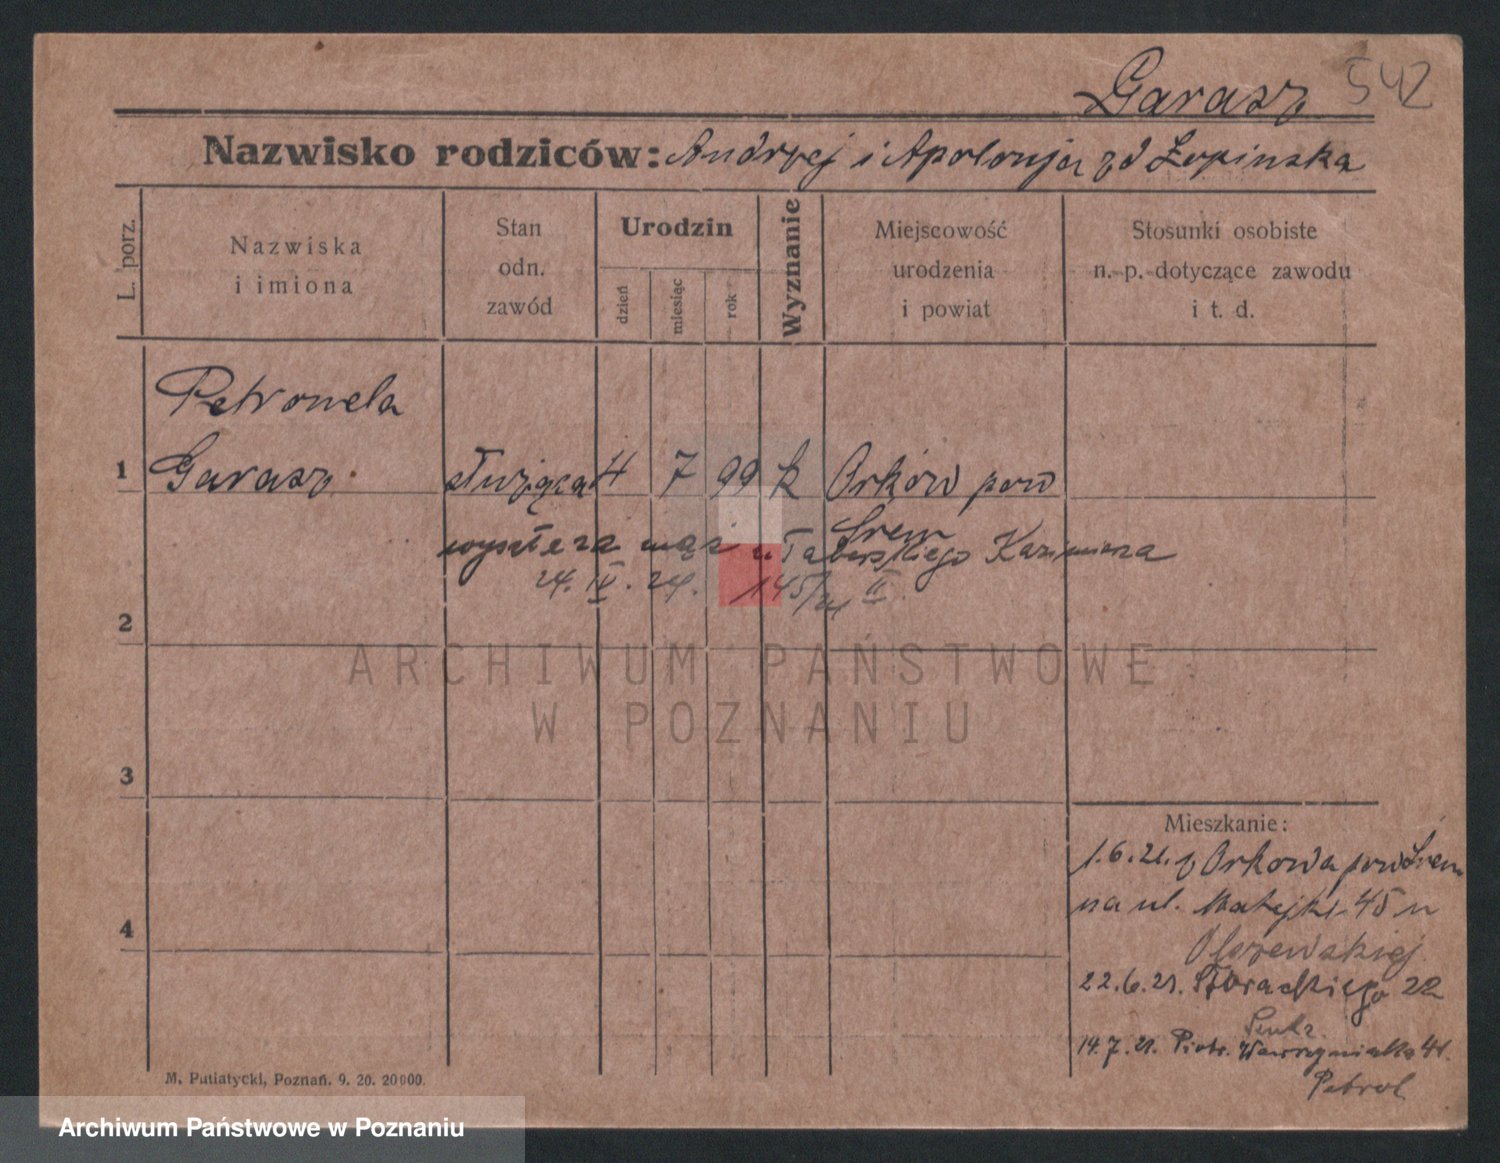 542
Garasz
Nazwisko rodziców: Andrzej i Apolonja zd Łopinska
L. porz.
Nazwiska i imiona
Stan odn. zawód
Urodzin
dzień
miesiąc
rok
Wyznanie
Miejscowość urodzenia i powiat
Stosunki osobiste n. p. dotyczące zawodu i t. d.
Petronela
1 Garasz służąca 4 7 99 k Orków pow
Śrem
wyszła za mąż u Taberskiego Kazimierza
24. IV. 24. 145/24 II
2
ARCHIWUM PAŃSTWOWE
W POZNANIU
3
Mieszkanie:
1.6.21. z Orkowa pow Śrem
na ul. Matejki 45 u
4
Olszewskiej
22.6.21. Słowackiego 22
14.7.21. Piotr. Wawrzyniaka 41.
M. Putiatycki, Poznań. 9. 20. 20000.
Archiwum Państwowe w Poznaniu